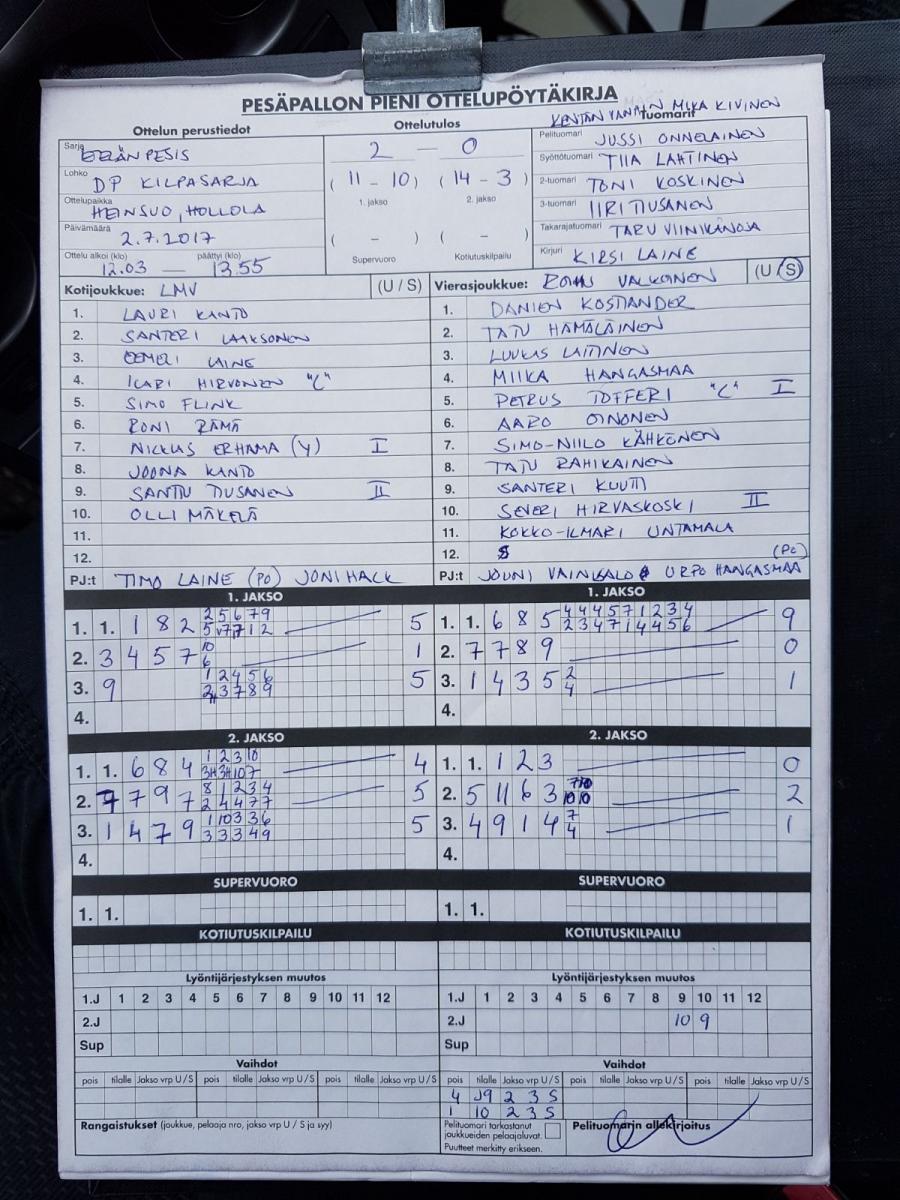 PESÄPALLON PIENI OTTELUPÖYTÄKIRJA
Ottelun perustiedot
Ottelutulos
KENTÄN VANHIN MIKA KIVINEN
Tuomarit
Sarja ETELÄN PESIS
Lohko DP KILPASARJA
Ottelupaikka HEINSUO, HOLLOLA
Päivämäärä 2.7.2017
Ottelu alkoi (klo) päättyi (klo)
12.03 — 13.55
2 — 0
( 11 - 10 ) ( 14 - 3 )
1. jakso 2. jakso
( - ) ( - )
Supervuoro Kotiutuskilpailu
Pelituomari JUSSI ONNELAINEN
Syöttötuomari TIIA LAHTINEN
2-tuomari TONI KOSKINEN
3-tuomari IIRI TIUSANEN
Takarajatuomari TARU VIINIKANOJA
Kirjuri KIRSI LAINE
Kotijoukkue: LMV (U / S)
1. LAURI KANTO
2. SANTERI LAAKSONEN
3. EEMELI LAINE
4. ILARI HIRVONEN "C"
5. SIMO FLINK
6. RONI RÄMÄ
7. NICKLAS ERHAMA (Y) I
8. JOONA KANTO
9. SANTTU TIUSANEN II
10. OLLI MÄKELÄ
11.
12.
PJ:t TIMO LAINE (PO) JONI HACK
Vierasjoukkue: VALKOINEN (U / S)
1. DANIEN KOSTIANDER
2. TATU HÄMÄLÄINEN
3. LUUKAS LAITINEN
4. MIIKA HANGASMAA
5. PETRUS TOFFERI "C" I
6. AARO OINONEN
7. SIMO-NIILO KÄHKÖNEN
8. TATU RAHIKAINEN
9. SANTERI KUUTTI
10. SEVERI HIRVASKOSKI II
11. KOKKO-ILMARI UNTAMALA
12. (PO)
PJ:t JOUNI VAINIKALO URPO HANGASMAA
1. JAKSO
1. 1. 1 8 2 2 5 6 7 9 5
5 v7 7 1 2
2. 3 4 5 7 10 1
6
3. 9 1 2 4 5 6 5
3 7 8 9
4.
1. JAKSO
1. 1. 6 8 5 4 4 4 5 7 1 2 3 4 9
2 3 4 7 1 4 4 5 6
2. 7 7 8 9 0
3. 1 4 3 5 2 1
4
4.
2. JAKSO
1. 1. 6 8 4 1 2 3 10 4
3H 3H 10 7
2. 7 7 9 7 8 1 2 3 4 5
2 4 4 7 7
3. 1 4 7 9 1 10 3 3 6 5
3 3 3 4 9
4.
2. JAKSO
1. 1. 1 2 3 0
2. 5 11 6 3 7 10 2
10 10
3. 4 9 1 4 7 1
4
4.
SUPERVUORO
1. 1.
SUPERVUORO
1. 1.
KOTIUTUSKILPAILU
KOTIUTUSKILPAILU
Lyöntijärjestyksen muutos
1.J 1 2 3 4 5 6 7 8 9 10 11 12
2.J
Sup
Lyöntijärjestyksen muutos
1.J 1 2 3 4 5 6 7 8 9 10 11 12
2.J 10 9
Sup
Vaihdot
pois tilalle Jakso vrp U / S pois tilalle Jakso vrp U / S pois tilalle Jakso vrp U / S
Vaihdot
pois tilalle Jakso vrp U / S pois tilalle Jakso vrp U / S pois tilalle Jakso vrp U / S
4 J9 2 3 S
1 10 2 3 S
Rangaistukset (joukkue, pelaaja nro, jakso vrp U / S ja syy)
Pelituomari tarkastanut
joukkueiden pelaajaluvat.
Puutteet merkitty erikseen.
Pelituomarin allekirjoitus